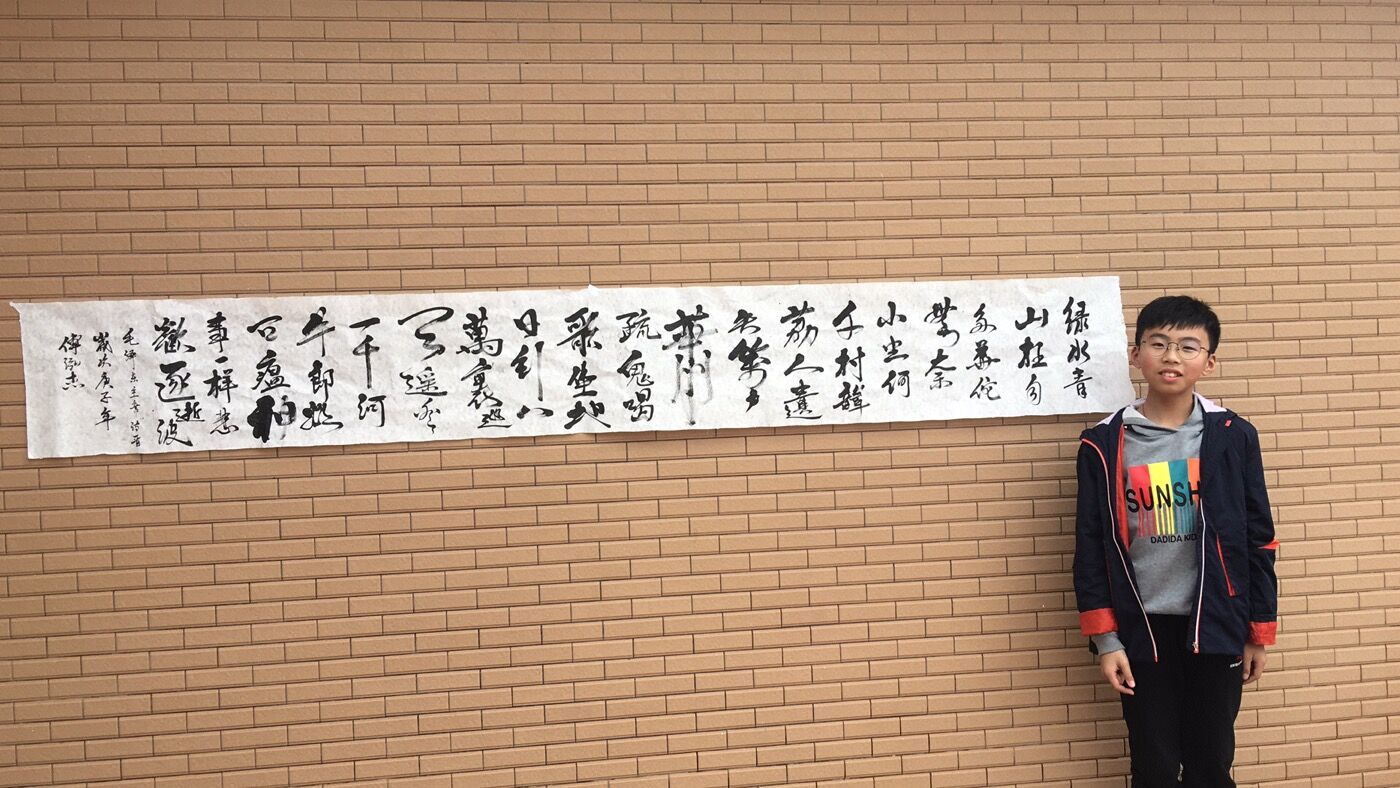 绿水青
山枉自
多華佗
無奈
小虫何
千村薜
荔人遺
矢萬户
蕭
疏鬼唱
歌坐地
日行八
萬裏巡
天遥看
一千河
牛郎欲
问瘟神
事一样悲
歡逐逝波
毛泽东主席诗词
歲次庚子年
傅
SUNSH
DADIDA KID